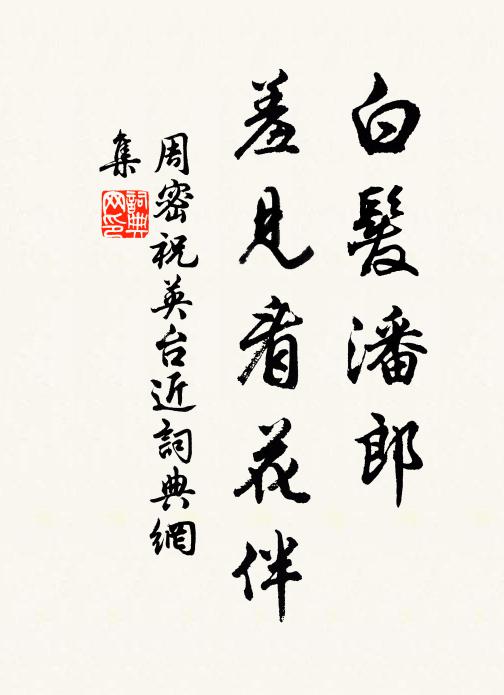 白髮潘郎
羞見看花伴
周密祝英台近詞典網
集
詞典
网印